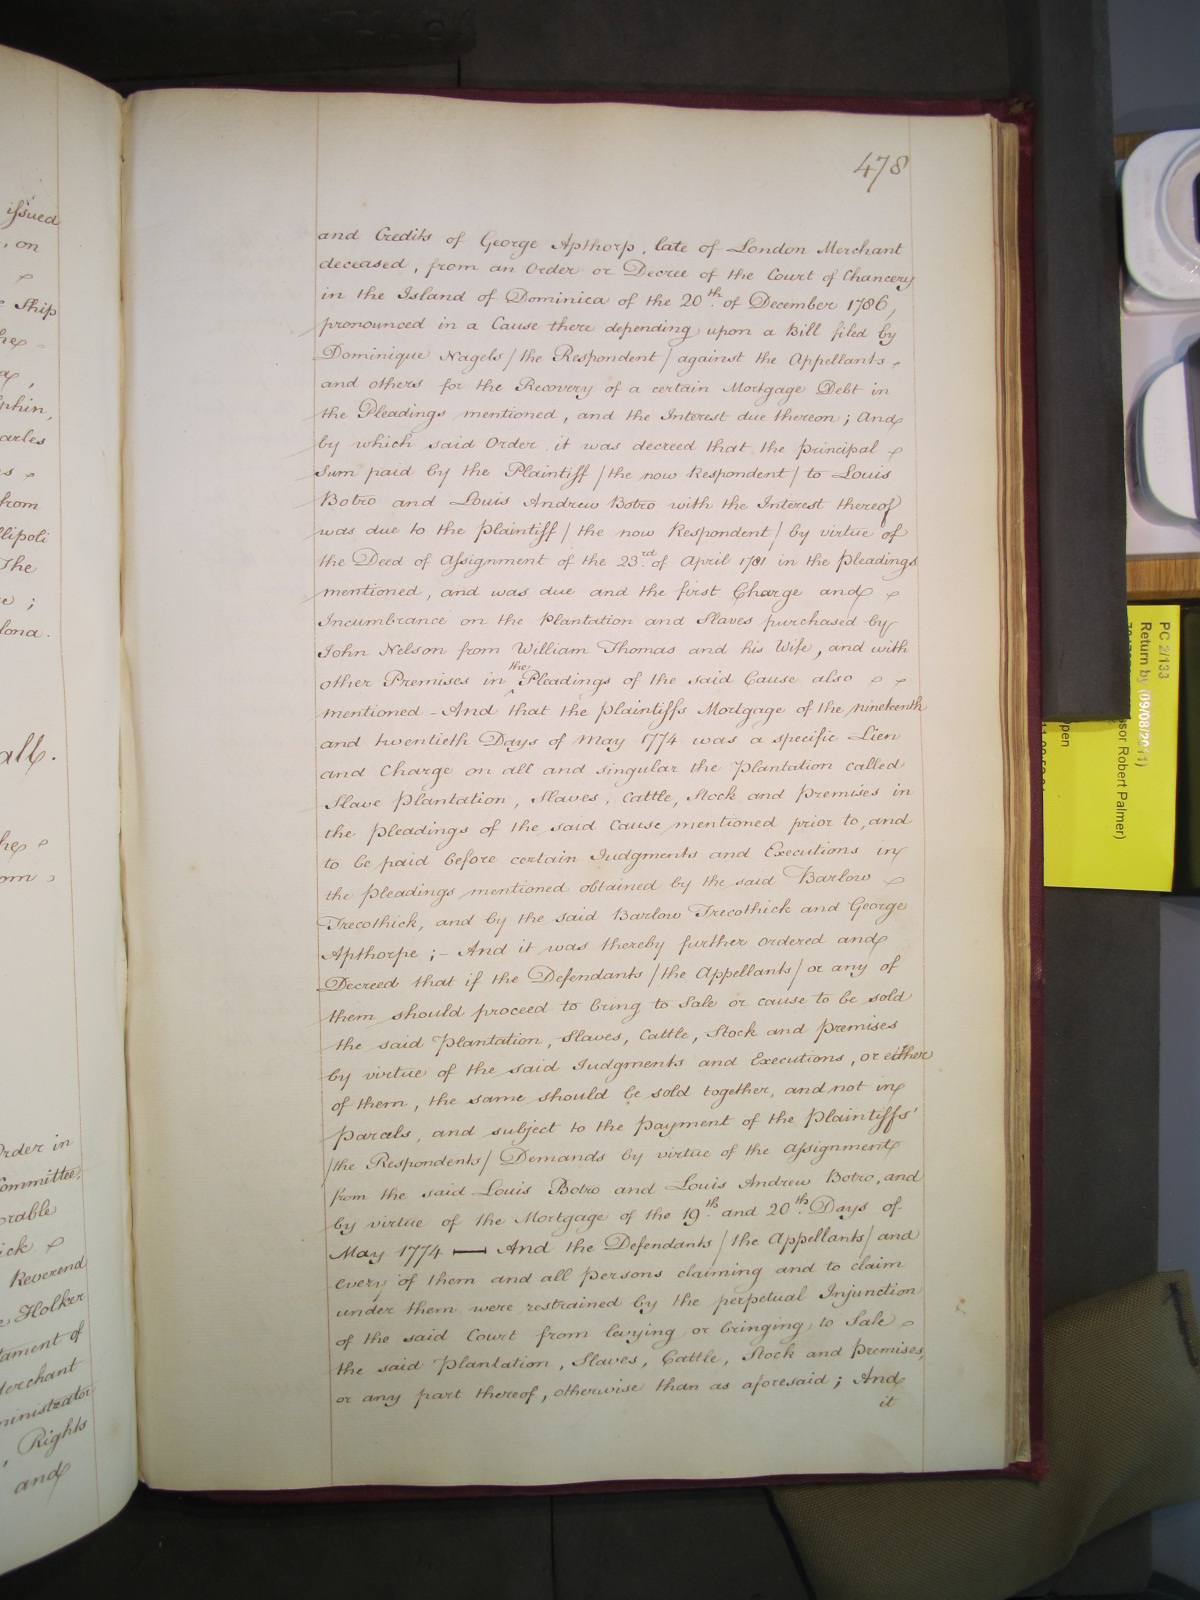 issued
, on
Ship
arles
from
llipoli
The
e ;
lona.
Order in
Committee.
orable
ick
Reverend
Holker
tament of
Merchant
ministrator
, Rights
and
478
and Credits of George Apthorp, late of London Merchant
deceased, from an Order or Decree of the Court of Chancery
in the Island of Dominica of the 20th. of December 1786,
pronounced in a Cause there depending upon a Bill filed by
Dominique Nagels / the Respondent / against the Appellants
and others for the Recovery of a certain Mortgage Debt in
the Pleadings mentioned, and the Interest due thereon; And
by which said Order it was decreed that the principal
Sum paid by the Plaintiff / the now Respondent / to Louis
Botro and Louis Andrew Botro with the Interest thereof
was due to the Plaintiff / the now Respondent / by virtue of
the Deed of Assignment of the 23rd. of April 1781 in the Pleadings
mentioned, and was due and the first Charge and
Incumbrance on the Plantation and Slaves purchased by
John Nelson from William Thomas and his Wife, and with
other Premises in the Pleadings of the said Cause also
mentioned - And that the Plaintiffs Mortgage of the nineteenth
and twentieth Days of May 1774 was a specific Lien
and Charge on all and singular the Plantation called
Slave Plantation, Slaves, Cattle, Stock and Premises in
the Pleadings of the said Cause mentioned prior to, and
to be paid before certain Judgments and Executions in
the Pleadings mentioned obtained by the said Barlow
Trecothick, and by the said Barlow Trecothick and George
Apthorpe ; - And it was thereby further ordered and
Decreed that if the Defendants / the Appellants / or any of
them should proceed to bring to Sale or cause to be sold
the said Plantation, Slaves, Cattle, Stock and Premises
by virtue of the said Judgments and Executions, or either
of them, the same should be sold together, and not in
Parcels, and subject to the Payment of the Plaintiffs'
/ the Respondents / Demands by virtue of the Assignment
from the said Louis Botro and Louis Andrew Botro, and
by virtue of the Mortgage of the 19th. and 20th. Days of
May 1774 — And the Defendants / the Appellants / and
every of them and all Persons claiming and to claim
under them were restrained by the perpetual Injunction
of the said Court from levying or bringing to Sale
the said Plantation, Slaves, Cattle, Stock and Premises,
or any part thereof, otherwise than as aforesaid ; And
it
PC 2/133
Return by (09/08/2011)
ssor Robert Palmer)